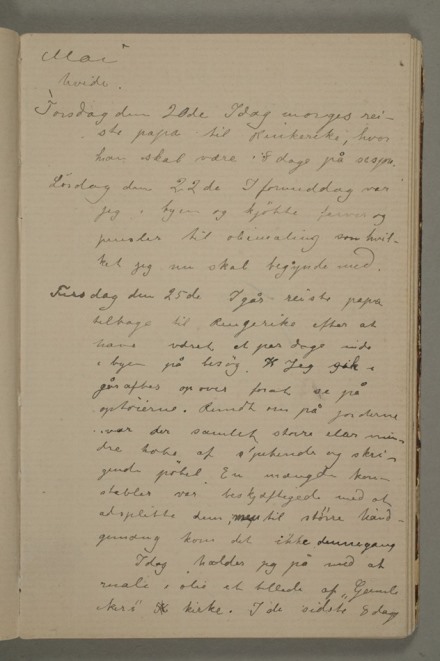 Mai
hvide.
Torsdag den 20de Idag morges rei-
ste papa til Ringerike, hvor
han skal være i 8 dage på
Lördag den 22de I formiddag var
jeg i byen og kjöbte farver og
pensler til oliemaling som hvil-
ket jeg nu skal begynde med.
Tirsdag den 25de Igår reiste papa
tilbage til Ringerike efter at
have været et par dage inde
i byen på besög. Jeg gik i
går aftes op over forat se på
optöierne. Rundt om på jorderne
var der samlet större eller min-
dre hobe af pibende og skri-
gende pöbel. En mængde kon-
stabler var beskjæftigede med at
adsplitte dem, til större hånd-
gemæng kom det ikke dennegang
Idag holder jeg på med at
male i olie et billede af „Gamle
Akers kirke. I de sidste 8 dag